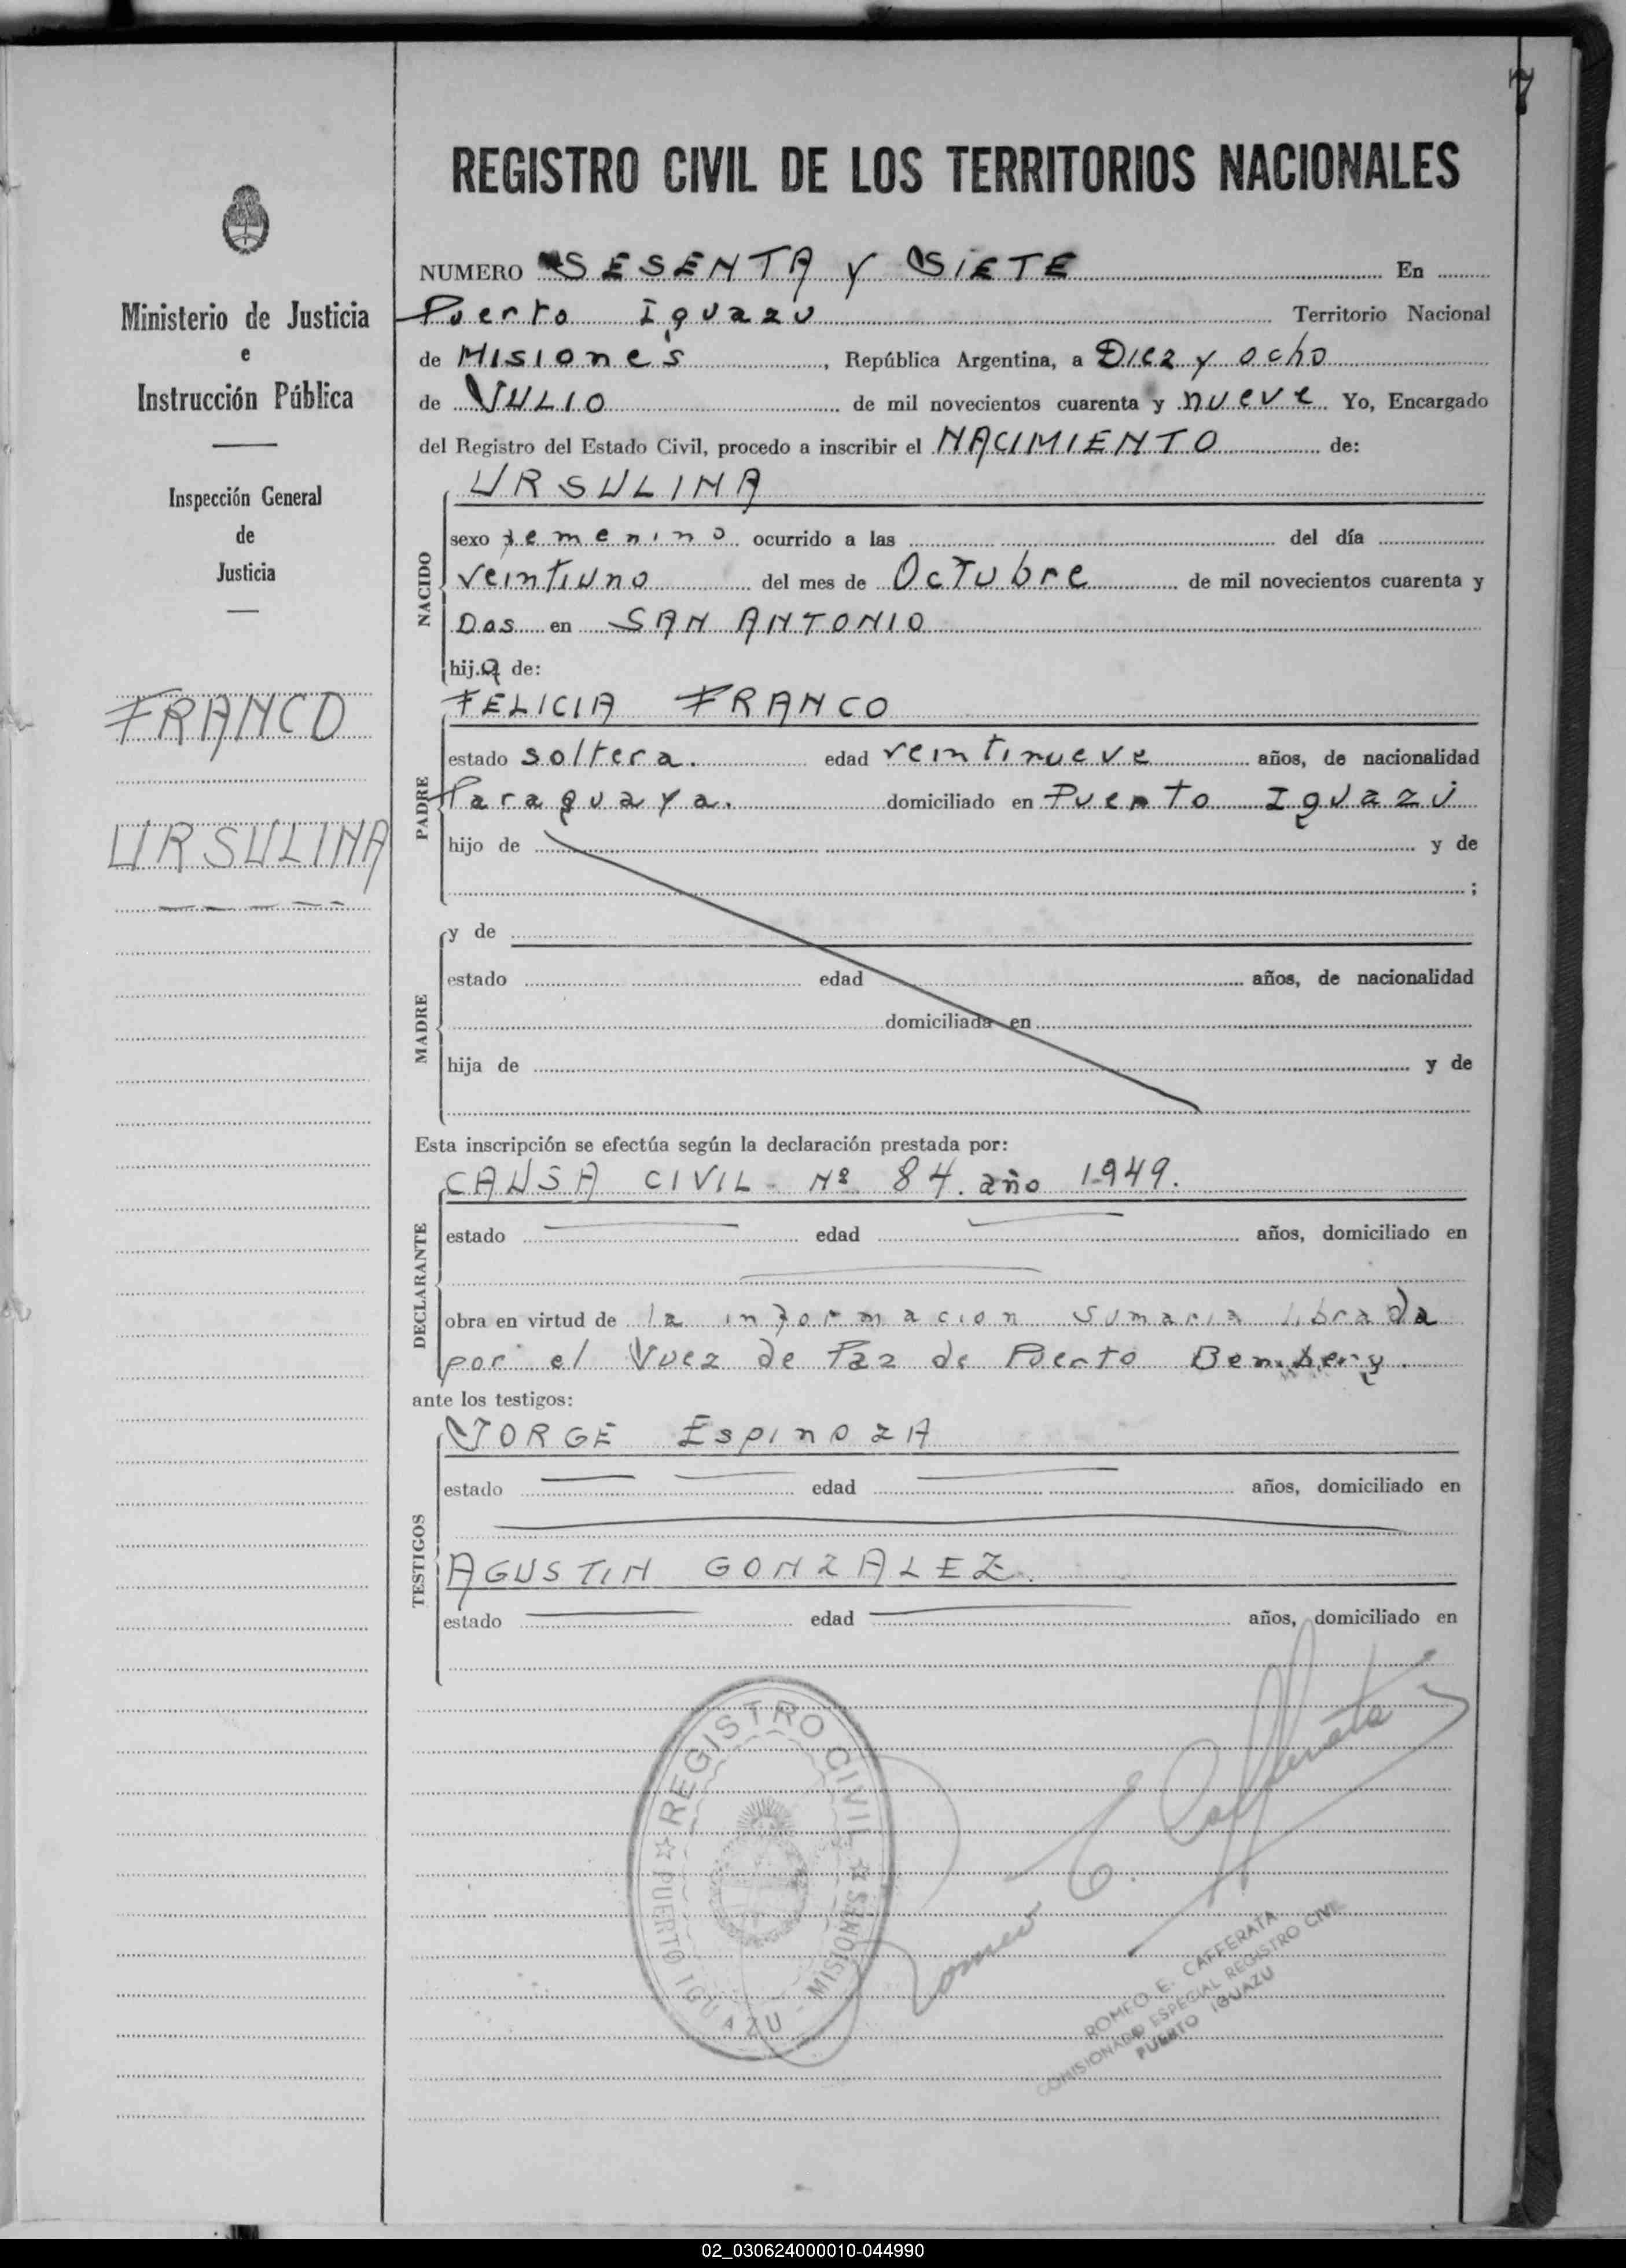 7
REGISTRO CIVIL DE LOS TERRITORIOS NACIONALES
Ministerio de Justicia
e
Instrucción Pública
Inspección General
de
Justicia
FRANCO
URSULINA
NUMERO SESENTA Y SIETE En
Puerto Iguazu Territorio Nacional
de Misiones, República Argentina, a Diez y ocho
de JULIO de mil novecientos cuarenta y nueve Yo, Encargado
del Registro del Estado Civil, procedo a inscribir el NACIMIENTO de:
URSULINA
NACIDO
sexo femenino ocurrido a las del día
veintiuno del mes de Octubre de mil novecientos cuarenta y
Dos en SAN ANTONIO
hija de:
FELICIA FRANCO
PADRE
estado soltera. edad veintinueve años, de nacionalidad
Paraguaya. domiciliado en Puerto Iguazú
hijo de y de
;
MADRE
y de
estado edad años, de nacionalidad
domiciliada en
hija de y de
Esta inscripción se efectúa según la declaración prestada por:
CAUSA CIVIL - Nº 84. año 1949.
DECLARANTE
estado edad años, domiciliado en
obra en virtud de la informacion sumaria librada
por el Juez de Paz de Puerto Bemberg.
ante los testigos:
JORGE EspinozA
TESTIGOS
estado edad años, domiciliado en
AGUSTIN GONZALEZ.
estado edad años, domiciliado en
REGISTRO CIVIL
PUERTO IGUAZU - MISIONES
Romeo E. Cafferata
ROMEO E. CAFFERATA
COMISIONADO ESPECIAL REGISTRO CIVIL
PUERTO IGUAZU
02_030624000010-044990